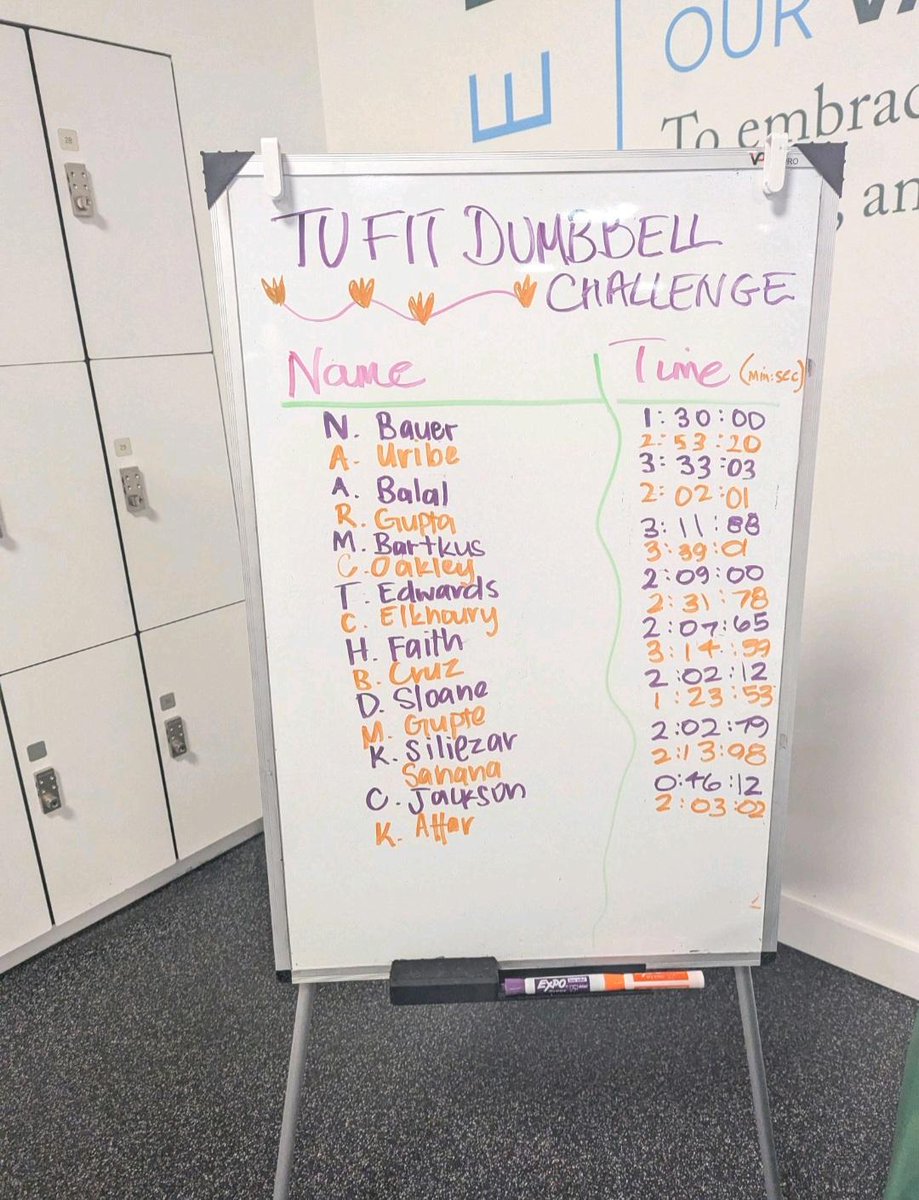 E
OUR
To embrac
, an
28
29
TU FIT DUMBBELL
CHALLENGE
Name Time (min:sec)
N. Bauer 1:30:00
A. Uribe 2:53:20
A. Balal 3:33:03
R. Gupta 2:02:01
M. Bartkus 3:11:88
C. Oakley
T. Edwards 2:09:00
C. Elkhoury 2:31:78
H. Faith 2:07:65
B. Cruz 3:14:59
D. Sloane 2:02:12
M. Gupte 1:23:53
K. Siliezar 2:02:79
Sahana 2:13:98
C. Jackson 0:46:12
K. Attar 2:03:02
EXPO